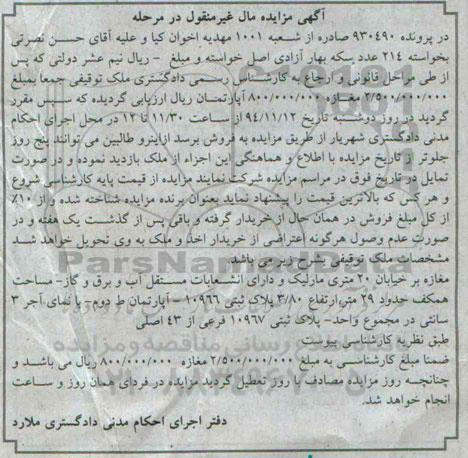 آگهی مزایده مال غیرمنقول در مرحله
در پرونده ۹۳۰۴۹۰ صادره از شعبه ۱۰۰۱ مهدیه اخوان کیا و علیه آقای حسن نصرتی
بخواسته ۲۱۴ عدد سکه بهار آزادی اصل خواسته و مبلغ - ریال نیم عشر دولتی که پس
از طی مراحل قانونی و ارجاع به کارشناس رسمی دادگستری ملک توقیفی جمعا بمبلغ
۲/۵۰۰/۰۰۰/۰۰۰ مغازه ۸۰۰/۰۰۰/۰۰۰ آپارتمان ریال ارزیابی گردیده که سپس مقرر
گردید در روز دوشنبه تاریخ ۹۴/۱۱/۱۲ از ساعت ۱۱/۳۰ تا ۱۲ در محل اجرای احکام
مدنی دادگستری شهریار از طریق مزایده به فروش برسد ازاینرو طالبین می توانند پنج روز
جلوتر از تاریخ مزایده با اطلاع و هماهنگی این اجراء از ملک بازدید نموده و در صورت
تمایل در تاریخ فوق در مراسم مزایده شرکت نمایند مزایده از قیمت پایه کارشناسی شروع
و هر کس که بالاترین قیمت را پیشنهاد نماید بعنوان برنده مزایده شناخته شده و از ۱۰٪
از کل مبلغ فروش در همان حال از خریدار گرفته و باقی پس از گذشت یک هفته و در
صورت عدم وصول هرگونه اعتراضی از خریدار اخذ و ملک به وی تحویل خواهد شد
مشخصات ملک توقیفی بشرح زیر می باشد
مغازه بر خیابان ۲۰ متری مارلیک و دارای انشعابات مستقل آب و برق و گاز- مساحت
همکف حدود ۲۹ متر ارتفاع ۳/۸۰ پلاک ثبتی ۱۰۹۶۶ - آپارتمان ط دوم- با نمای آجر ۳
سانتی در مجموع واحد- پلاک ثبتی ۱۰۹۶۷ فرعی از ۴۳ اصلی
طبق نظریه کارشناسی پیوست
ضمنا مبلغ کارشناسی به مبلغ ۲/۵۰۰/۰۰۰/۰۰۰ مغازه ۸۰۰/۰۰۰/۰۰۰ ریال می باشد و
چنانچه روز مزایده مصادف با روز تعطیل گردید مزایده در فردای همان روز و ساعت
انجام خواهد شد.
دفتر اجرای احکام مدنی دادگستری ملارد
ParsNamadData